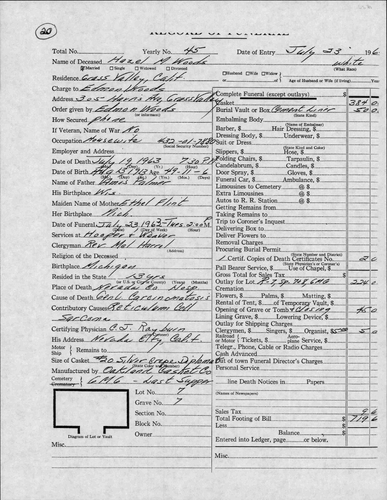 20
RECORD OF FUNERAL
Total No. Yearly No. 45 Date of Entry July 23 196
Name of Deceased Hazel M Woods white
Married Single Widowed Divorced (What Race)
Residence Grass Valley, Calif. Husband Wife Widow
of Age of Husband or Wife (if living) Yrs.
Charge to Edmon Woods
Address 305 Grass Valley
Order given by Edmon Woods
(or informant)
How Secured phone
If Veteran, Name of War No
Occupation Housewife
(Social Security Number)
Employer and Address
Date of Death July 19 1963 7:30 P.M.
Date of Birth Aug 13 1913 Age 49-11-6
Name of Father Palmer
His Birthplace Wis
Maiden Name of Mother Ethel Flint
Her Birthplace Mich.
Date of Funeral July 23 1963-Tues 2:00 P.M.
Services at Hooper & Weaver
Clergyman Rev Mel Harrel
Religion of the Deceased
Birthplace Michigan
Resided in the State 13 yrs
Place of Death Nevada Co Hosp
Cause of Death Genl Carcinomatosis
Contributory Cause Reticulum Cell
Sarcoma
Certifying Physician Rayburn
His Address Nevada City, Calif
Motor Ship Remains to
Size of Casket Silver
Manufactured by Oakland Casket Co
Cemetery Crematory Last Supper
Lot No. 7
Grave No. 7
Section No.
Block No.
Owner
Diagram of Lot or Vault
Complete Funeral (except outlays) $
Casket 384 0
Burial Vault or Box Cement Liner 50 0
(State Kind)
Embalming Body
(Name of Embalmer)
Barber, $ Hair Dressing, $
Dressing Body, $ Underwear, $
Suit or Dress
(State Kind)
Slippers, $ Hose, $
Folding Chairs, $ Tarpaulin, $
Candelabrum, $ Candles, $
Door Spray, $ Gloves, $
Funeral Car, $ Ambulance, $
Limousines to Cemetery @ $
Extra Limousines @ $
Autos to R. R. Station @ $
Getting Remains from
Taking Remains to
Trip to Coroner's Inquest
Delivering Box to
Deliver Flowers to
Removal Charges
Procuring Burial Permit
(State Number and District)
1 Certif. Copies of Death Certificates No. 2 0
(State Physician's or Coroner's)
Pall Bearer Service, $ Use of Chapel, $
Gross Total for Sales Tax $
Outlay for Lot 224 0
Cremation
Flowers, $ Palms, $ Matting, $
Rental of Tent, $ of Temporary Vault, $
Opening of Grave or Tomb & closing 45 0
Lining Grave, $ Lowering Device, $
Outlay for Shipping Charges
Clergyman, $ Singers, $ Organist, $5.00 5 0
Railroad or Motor Tickets, $ Aeroplane Service, $
Telegr., Phone, Cable or Radio Charges
Cash Advanced
Out of town Funeral Director's Charges
Personal Service
line Death Notices in Papers
(Names of Newspapers)
Sales Tax
Total Footing of Bill $ 719 6
Less
Balance $
Entered into Ledger, page or below.